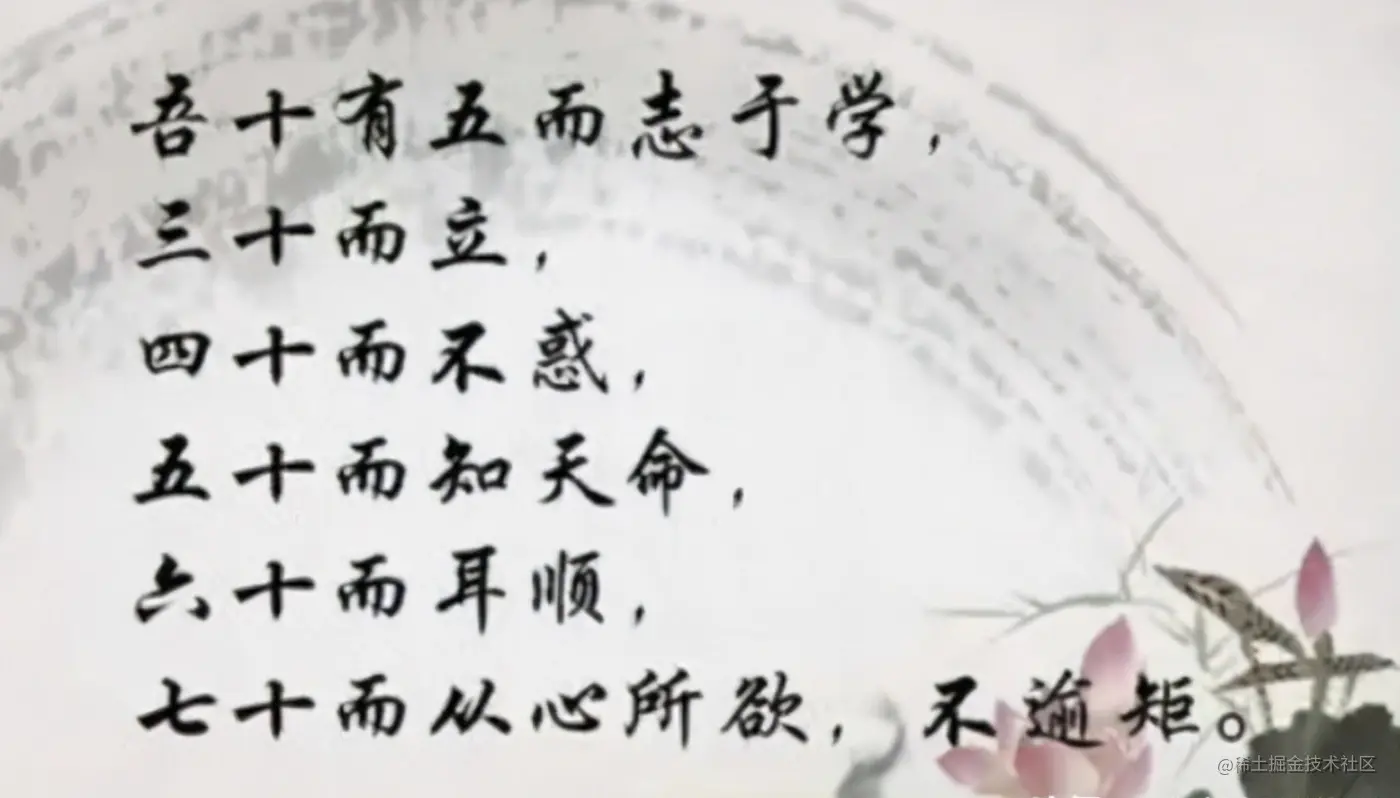 吾十有五而志于学，
三十而立，
四十而不惑，
五十而知天命，
六十而耳顺，
七十而从心所欲，不逾矩。
@稀土掘金技术社区